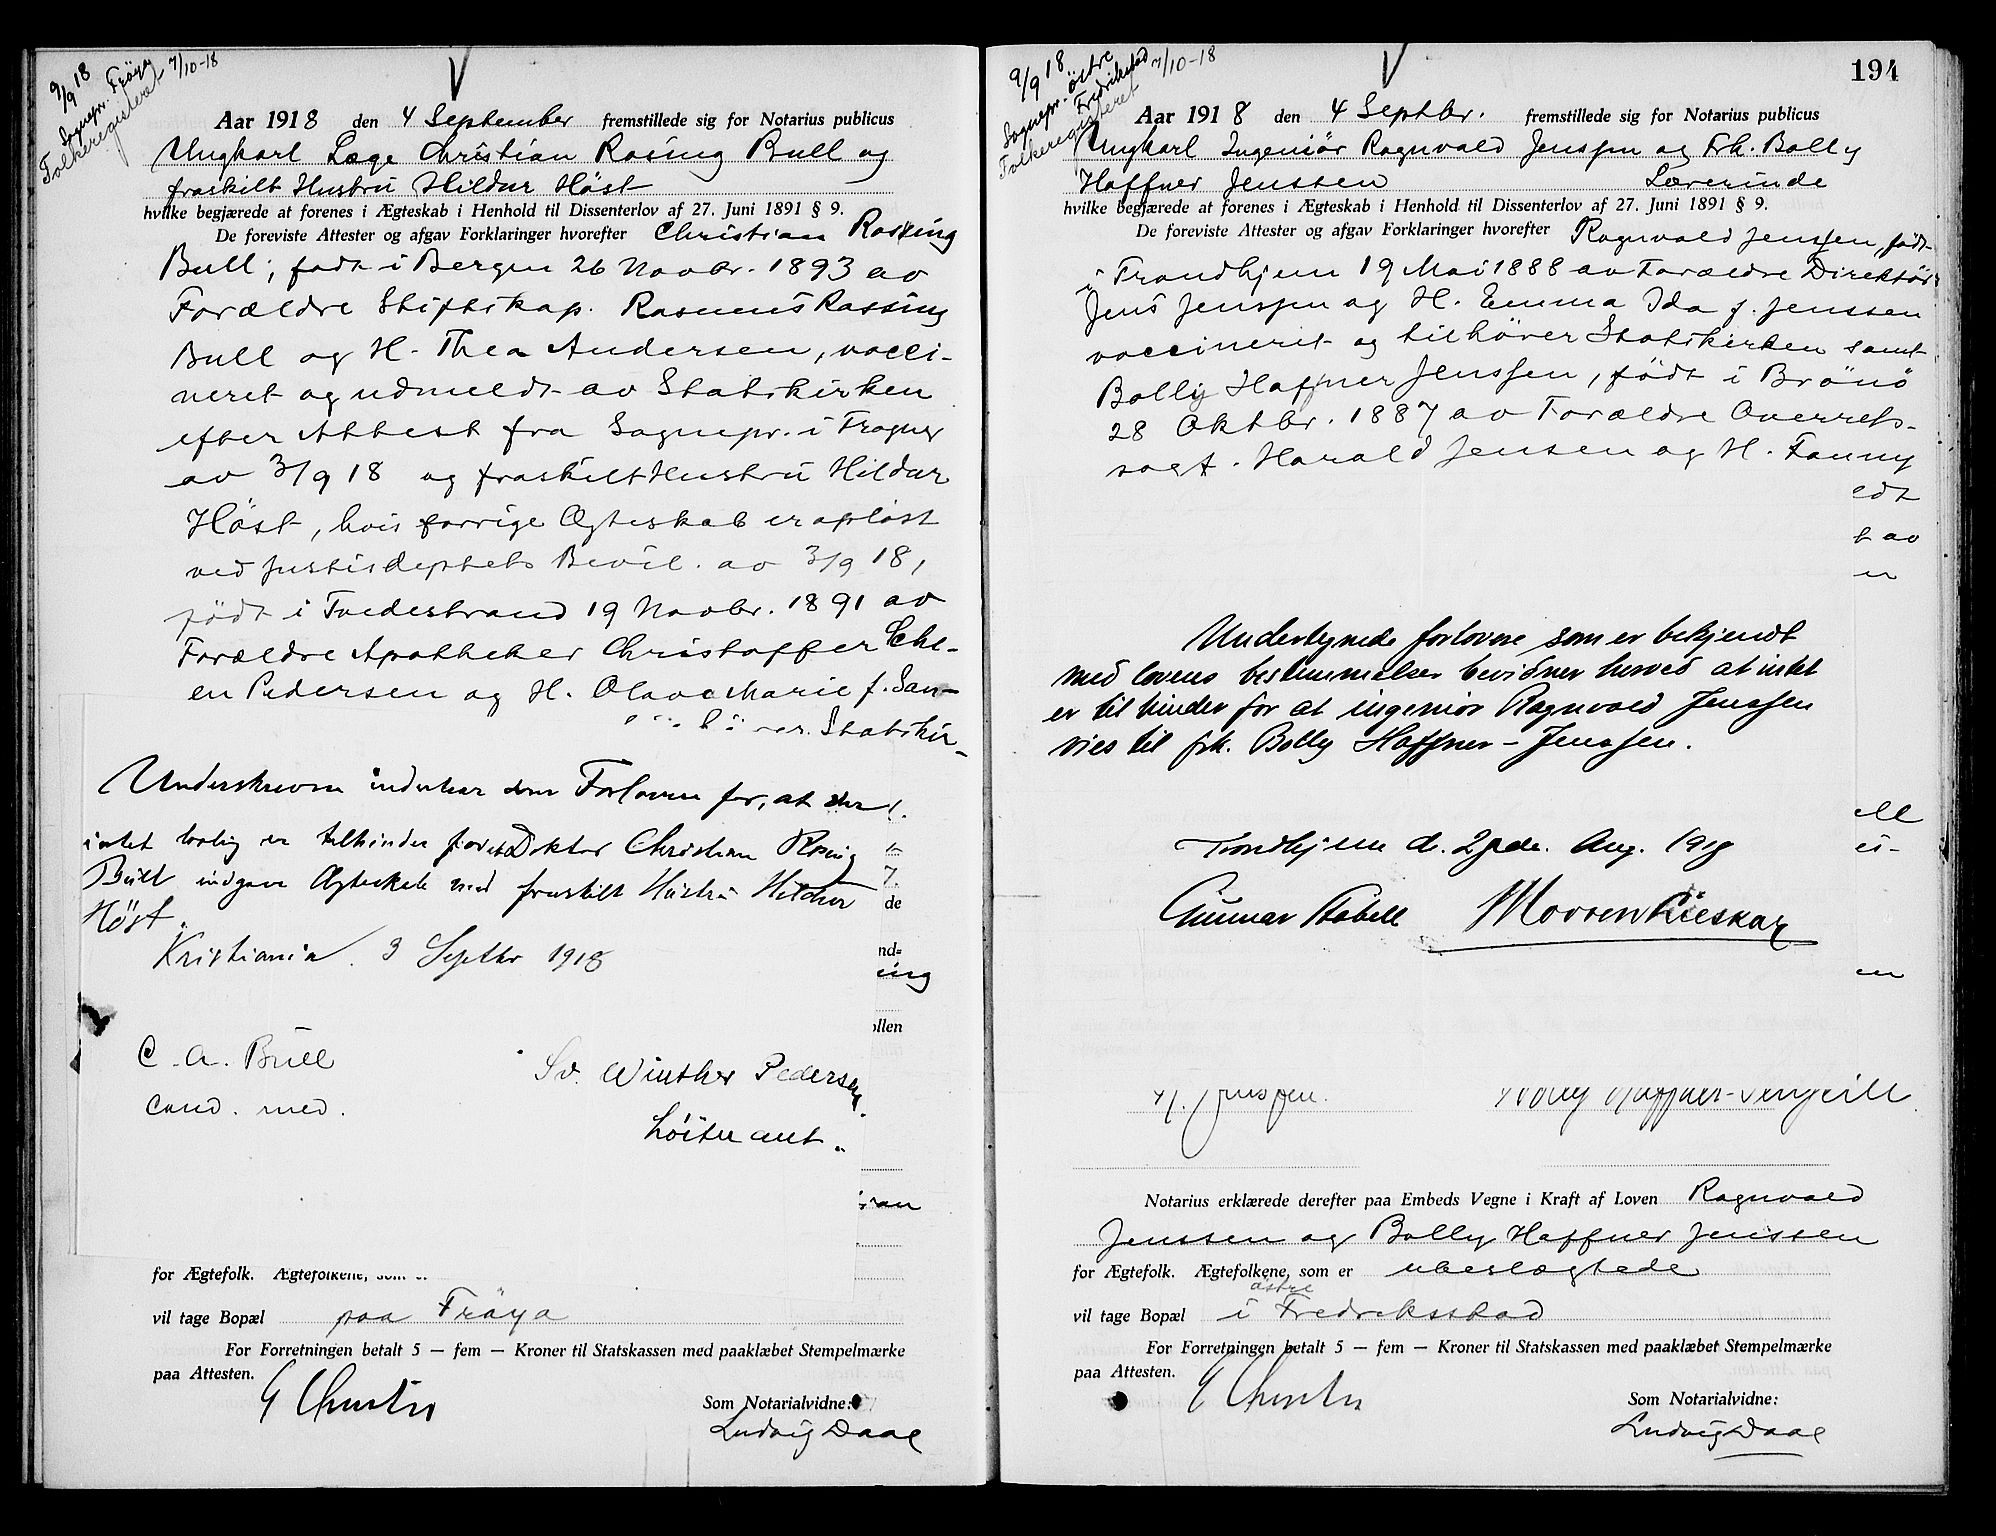 9/9 18
Sognepr. Frøya
Folkeregisteret 7/10-18
Aar 1918 den 4 September fremstillede sig for Notarius publicus
Ungkarl Læge Christian Rasing Bull og
fraskilt Hustru Hildur Höst
hvilke begjærede at forenes i Ægteskab i Henhold til Dissenterlov af 27. Juni 1891 § 9.
De foreviste Attester og afgav Forklaringer hvorefter Christian Rasking
Bull, født i Bergen 26 Novbr. 1893 av
Forældre Stiftskap. Rasmus Rassing
Bull og H. Thea Andersen, vacci-
neret og udmeldt av Statskirken
efter Attest fra Sognepr. i Frogner
av 3/9 18 og fraskilt Hustru Hildur
Höst, hvis forrige Ægteskab er opløst
ved Justisdeptets Bevil. av 3/9 18,
født i Tvedestrand 19 Novbr. 1891 av
Forældre Apotheker Christoffer
en Pedersen og H. Olava Marie f. San-
Statskir-
Underskrevne indestaar som Forlovere for, at der
intet lovlig er tilhinder for at Doktor Christian Rasing
Bull indgaar Ægteskab med fraskilt Hustru Hildur
Höst.
de
Kristiania. 3 Septbr 1918
nd=
ing
ollen
C. A. Bull
cand. med.
Sv. Winther Pedersen.
Löitnant.
ran
for Ægtefolk. Ægtefolkene, som e.
vil tage Bopæl paa Fröya
For Forretningen betalt 5 — fem — Kroner til Statskassen med paaklæbet Stempelmærke
paa Attesten.
Som Notarialvidne:
Ludvig Daae
194
9/9 18
Sognepr. östre
Fredrikstad
Folkeregisteret 7/10-18
Aar 1918 den 4 Septbr. fremstillede sig for Notarius publicus
Ungkarl Ingeniör Ragnvald Jenssen og Frk. Bolly
Haffner Jenssen Lærerinde
hvilke begjærede at forenes i Ægteskab i Henhold til Dissenterlov af 27. Juni 1891 § 9.
De foreviste Attester og afgav Forklaringer hvorefter Ragnvald Jenssen, født
i Trondhjem 19 Mai 1888 av Forældre Direktör
Jens Jenssen og H. Emma Ida f. Jenssen
vaccineret og tilhører Statskirken samt
Bolly Haffner Jenssen, født i Brönö
28 Oktbr. 1887 av Forældre Overrets-
sagf. Harald Jensen og H. Fanny
edt
t av
en
Undertegnede forlovere som er bekjendt
med lovens bestemmelser bevidner herved at intet
er til hinder for at ingeniör Ragnvald Jenssen
vies til frk. Bolly Haffner-Jenssen.
ell
Trondhjem d. 29de. Aug. 1918
ei-
Gunnar Stabell
en
H. Jenssen.
Notarius erklærede derefter paa Embeds Vegne i Kraft af Loven Ragnvald
Jenssen og Bolly Haffner Jenssen
for Ægtefolk. Ægtefolkene, som er ubeslægtede
östre
vil tage Bopæl i Fredriksstad
For Forretningen betalt 5 — fem — Kroner til Statskassen med paaklæbet Stempelmærke
paa Attesten.
Som Notarialvidne:
Ludvig Daae